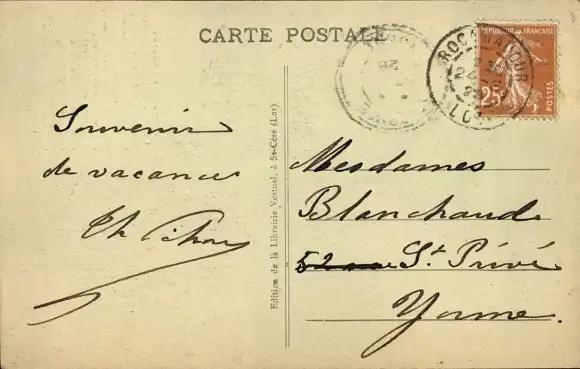 CARTE POSTALE
ROCAMADOUR
LOT
RÉPUBLIQUE FRANÇAISE
25c
POSTES
Souvenir
de vacances
Edition de la Librairie Vertuel, à St-Céré (Lot)
Mesdames
Blanchaud
52 rue St Privé
Yonne.